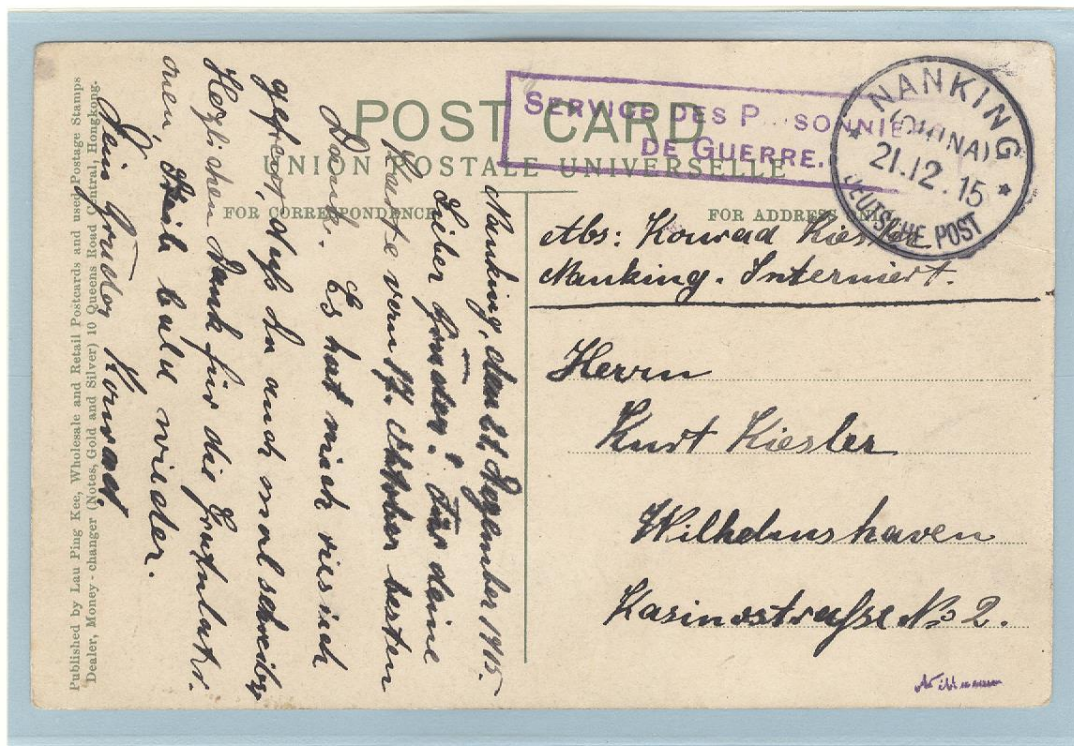 POST CARD
UNION POSTALE UNIVERSELLE
FOR CORRESPONDENCE
FOR ADDRESS ONLY
SERVICE DES P...SONNIE
DE GUERRE.
NANKING
(CHINA)
21.12.15
DEUTSCHE POST
Abs: Konrad Kiesler
Nanking. Interniert.
Herrn
Kurt Kiesler
Wilhelmshaven
Kasinostraße No 2.
Nanking, den 21. Dezember 1915.
Lieber Bruder! Für deine
Karte vom 17. Oktober besten
Dank. Es hat mich riesich
gefreut, daß du auch mal schreibst.
Herzlichen Dank für die Gratulatz.
onen, Schreib bald wieder.
Dein Bruder Konrad.
Published by Lau Ping Kee, Wholesale and Retail Postcards and used Postage Stamps
Dealer, Money-changer (Notes, Gold and Silver) 10 Queens Road Central, Hongkong.